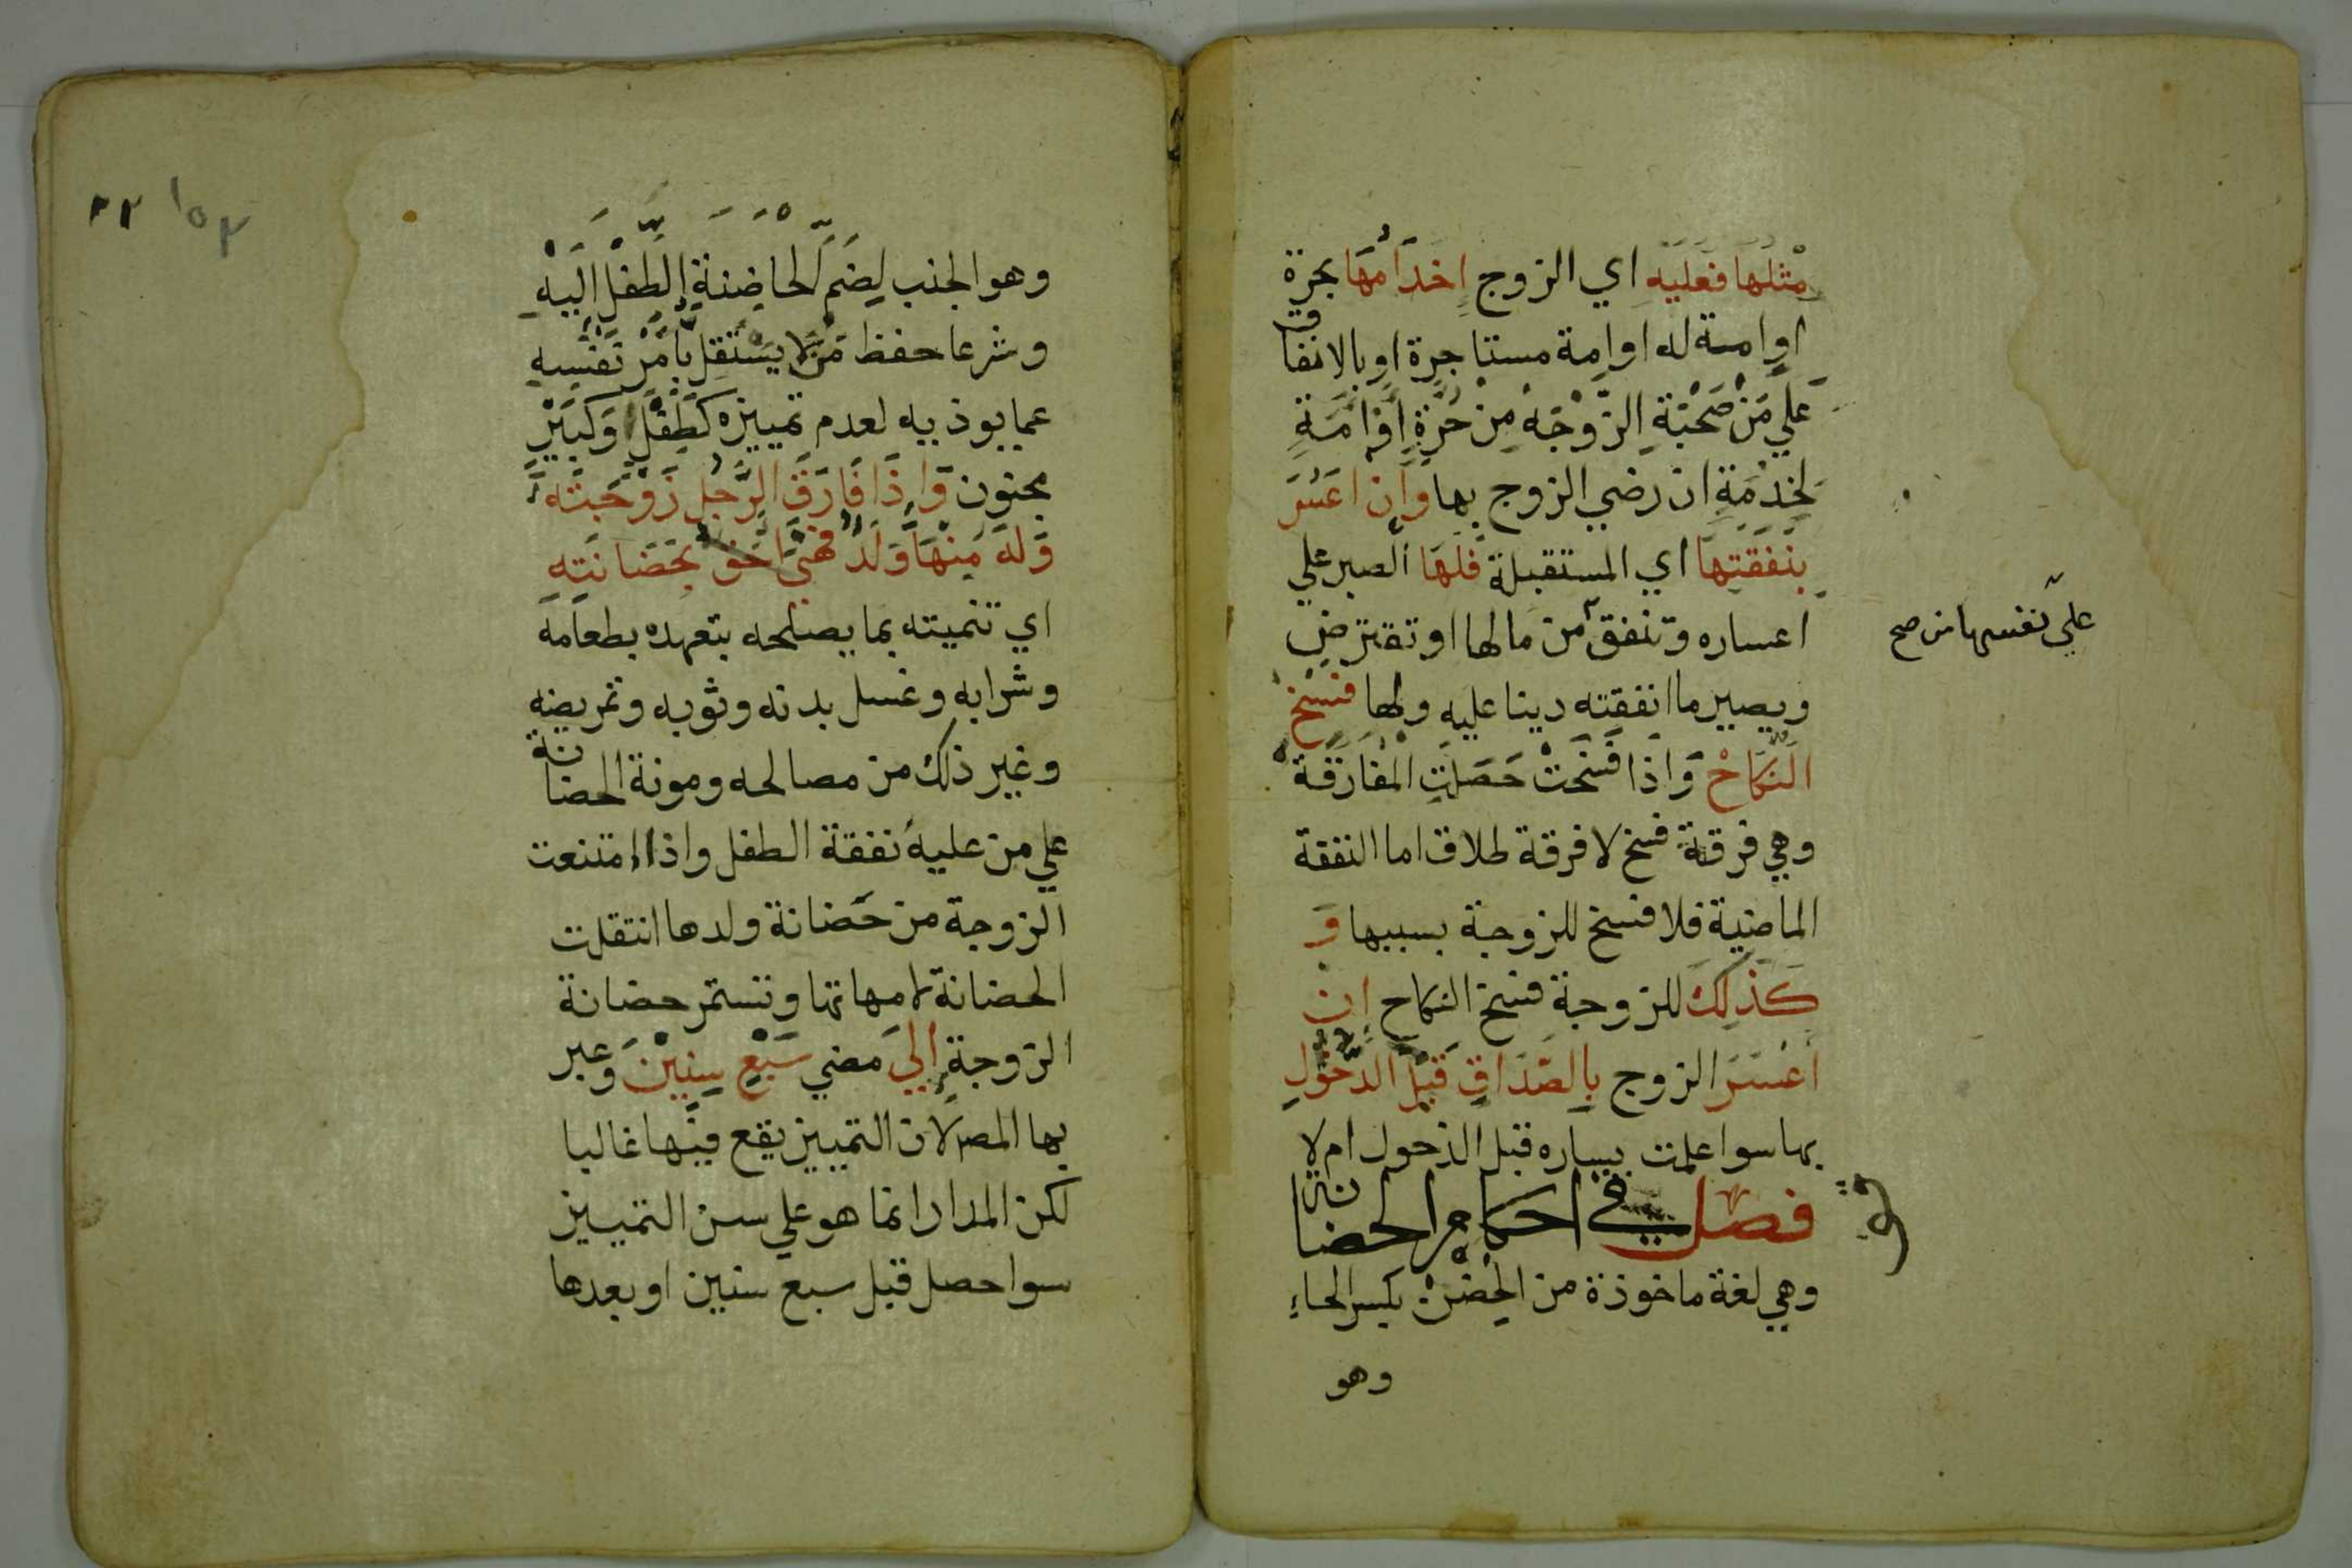 مثلها فعليه اي الزوج اخدامها بحرة
اوامة له اوامة مستاجرة اوبالانفاق
علي مَنْ صَحْبَةِ الزَّوْجَة مِنْ حُرَّةٍ اَوْ اَمَةٍ
لخِدْمَةِ ان رضي الزوج بها وان اعسَرَ
بنَفَقَتِهَا اي المستقبلة فَلَهَا الصبر علي
اعساره وتنفق من مالها اوتقترض
علي نفسها من صح
ويصير ما انفقته دينا عليه ولها فسخ
النكاح وَاِذا فسَخَتْ حَصَلَتِ المفَارَقَة
وهي فرقة فسخ لا فرقة طلاق اما النفقة
الماضية فلا فسخ للزوجة بسببها وَ
كَذلِكَ للزوجة فسخ النكاح اِن
اَعْسَرَ الزوج بِالصَّدَاقِ قَبْلَ الدّخُولِ
بها سوا علمت يساره قبل الدخول ام لا
فصل في احكام الحضانة
وهي لغة ماخوذة من الحِضْنْ بكسر الحاءِ
وهو
١٥٣
وهو الجنب لِضَمِّ الحاضِنَةِ الطِّفْلَ اِلَيْهِ
وشرعا حفظ مَنْ لا يَسْتَقِلّ بِاَمْرِ نَفْسِهِ
عما يوذيه لعدم تمييزه كَطِفْلٍ وَكَبِيْرٍ
مجنون وَاِذَا فَارَقَ الرَّجُل زَوْجَتَهُ
وَلَهُ مِنْهَا وَلَدٌ فَهِيَ اَحَقّ بِحَضَانَتِهِ
اي تنميته بما يصلحه بتعهده بطعامه
وشرابه وغسل بدنه وثوبه وتمريضه
وغير ذلك من مصالحه ومونة الحضانة
علي من عليه نفقة الطفل واذا امتنعت
الزوجة من حَضانة ولدها انتقلت
الحضانة لامهاتها وتستمر حضانة
الزوجة اِلَي مضي سَبْعِ سِنِيْنَ وعبر
بها المصر لان التمييز يقع فيها غالبا
لكن المدار انما هو علي سن التمييز
سوا حصل قبل سبع سنين او بعدها